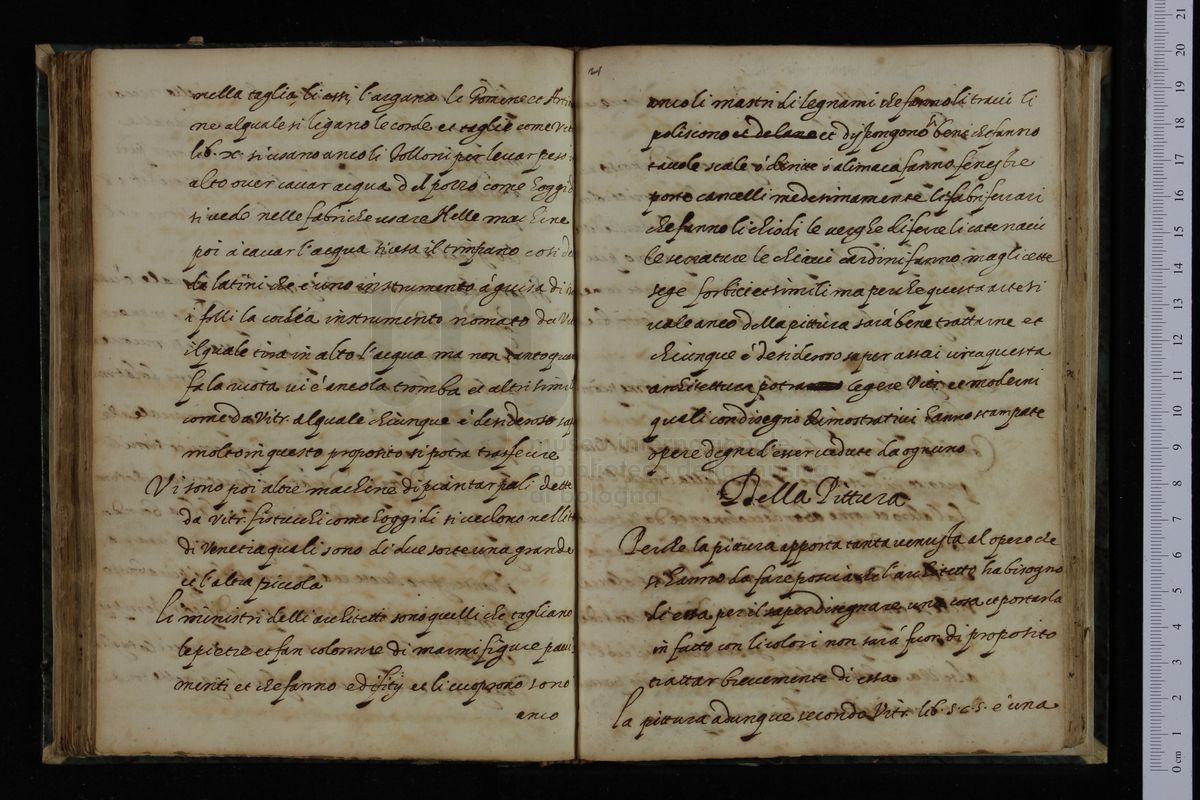 nella taglia li assi, l'argana le Gomene et Artim
ne al quale si ligano le corde et taglie come Vit
lib. x. si usano ancoli Tolloni per levar peso
alto over cavar acqua del pozzo come hoggid
si vede nelle fabriche usare Nelle machine
poi à cavar l'acqua si usa il timpano cosi de
da latini che é uno instrumento á guisa di
folli la coclea instrumento nomato da Vit
il quale tira in alto l'acqua ma non tanto quan
fa la ruota vi é ancola tromba et altri simil
come da Vitr. al quale chiunque é desideroso sap
molto in questo proposito si potra trasferire
Vi sono poi altre machine di piantar pali dette
da Vitr. fistuchi come hoggidi si vedono nelli lit
di Venetia quali sono di due sorte una grande
et l'altra piccola
Li ministri delli architetti sono quelli che tagliano
le pietre et fan colonne di marmi figure paui
menti et che fanno edifitij et li cuoprono sono
anco
anco li mastri di legnami che fanno li travi li
poliscono et dispongono bene che fanno
tavole scale ó dritte ó a limaca fanno fenestre
porte cancelli medesimamente li fabri ferrari
che fanno li chiodi le verghe di ferre li catenacci
le serrature le chiavi cardini fanno magli cette
sege forbici et simili ma perche questa arte si
vale anco della pittura sará bene trattarne et
chiunque é desideroso saper assai circa questa
architettura potra legere Vitr. et moderni
quali con disegni dimostrativi hanno stampate
opere degne d'esser vedute da ognuno
Della Pittura
Perche la pittura apporta tanta venusta al opere che
si hanno da fare poscia che l'architetto ha bisogno
di essa per il saper disegnare una cosa et portarla
in fatto con li colori non sará fuor di proposito
trattar brevemente di essa
La pittura adunque secondo Vitr. lib. 5. c. 5. é una
museo internazionale
e biblioteca della musica
di bologna